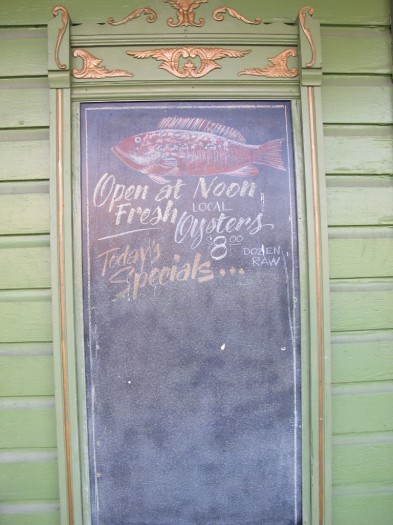 Open at Noon
Fresh LOCAL
Oysters
$8.00 DOZEN
RAW
Today's
Specials...